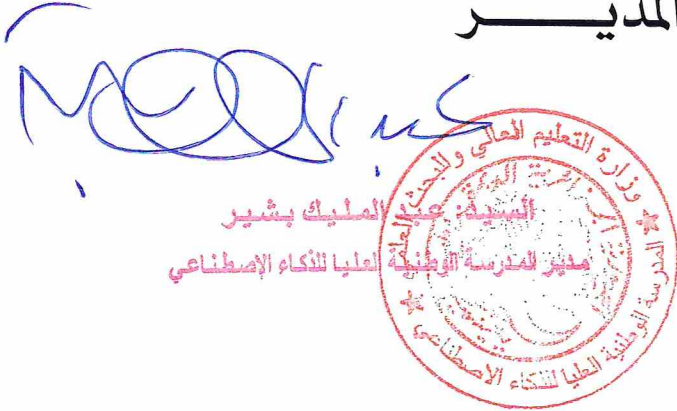 المديـــــر
السيد: عبد المليك بشير
مدير المدرسة الوطنية العليا للذكاء الإصطناعي
وزارة التعليم العالي والبحث العلمي
المدرسة الوطنية العليا للذكاء الاصطناعي